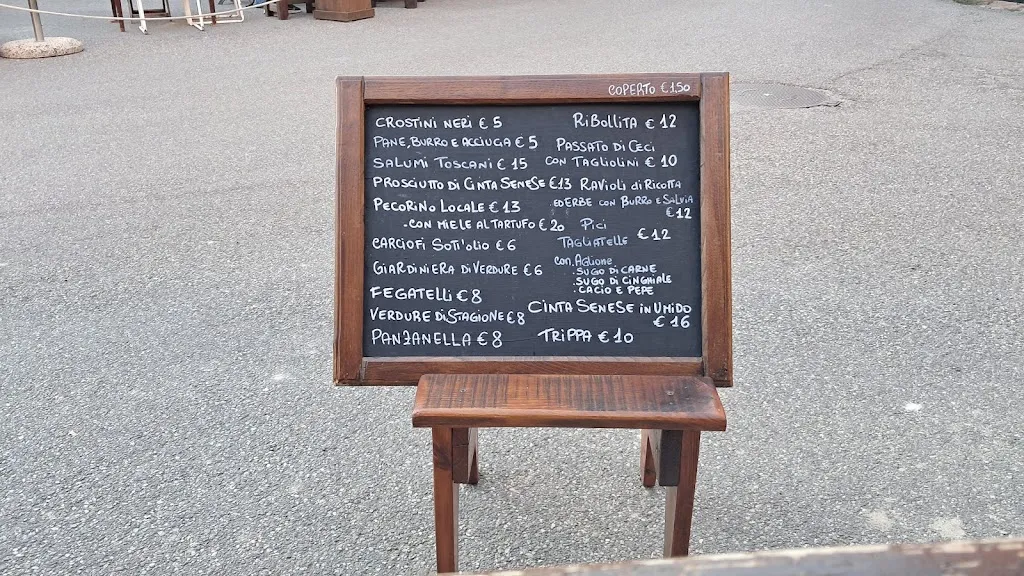 COPERTO €1.50
CROSTINI NERI € 5
PANE, BURRO E ACCIUGA € 5
SALUMI TOSCANI € 15
PROSCIUTTO DI CINTA SENESE €13
PECORINO LOCALE € 13
- CON MIELE AL TARTUFO € 20
CARCIOFI SOTT'OLIO € 6
GIARDINIERA DI VERDURE € 6
FEGATELLI € 8
VERDURE DI STAGIONE € 8
PANZANELLA € 8
RIBOLLITA € 12
PASSATO DI CECI
CON TAGLIOLINI € 10
RAVIOLI di RICOTTA
ED ERBE CON BURRO E SALVIA
€ 12
PICI
TAGLIATELLE € 12
CON. AGLIONE
. SUGO DI CARNE
. SUGO DI CINGHIALE
. CACIO E PEPE
CINTA SENESE IN UMIDO
€ 16
TRIPPA € 10